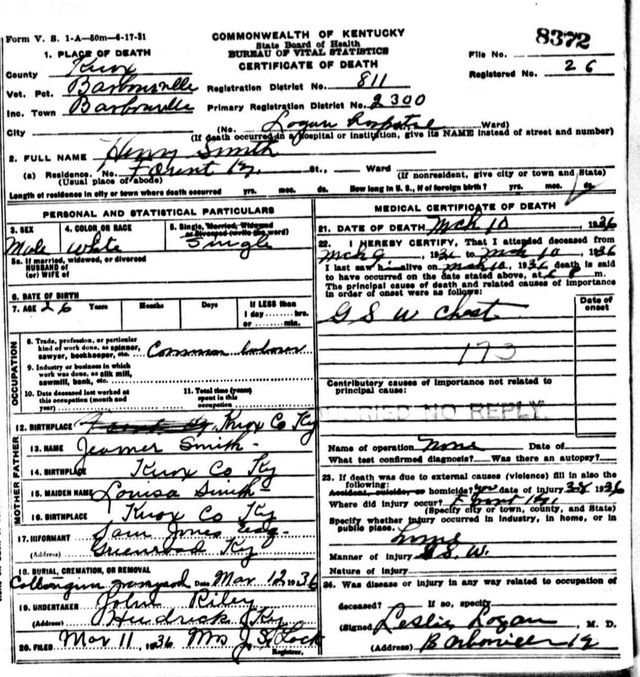 Form V. S. 1-A—50m—6-17-31
COMMONWEALTH OF KENTUCKY
State Board of Health
BUREAU OF VITAL STATISTICS
CERTIFICATE OF DEATH
File No. 8372
Registered No. 26
1. PLACE OF DEATH
County Knox
Vot. Pct. Barbourville Registration District No. 811
Inc. Town Barbourville Primary Registration District No. 2300
City (No. Logan Hospital Ward)
(If death occurred in a hospital or institution, give its NAME instead of street and number)
2. FULL NAME Henry Smith
(a) Residence. No. Ky. St., Ward
(Usual place of abode) (If nonresident, give city or town and State)
Length of residence in city or town where death occurred yrs. mos. ds. How long in U. S., if of foreign birth? yrs. mos. ds.
PERSONAL AND STATISTICAL PARTICULARS
3. SEX Male
4. COLOR OR RACE White
5. Single, Married, Widowed or Divorced (write the word) Single
5a. If married, widowed, or divorced
HUSBAND of
(or) WIFE of
6. DATE OF BIRTH
7. AGE 26 Years Months Days If LESS than
1 day ........ hrs.
or ........ min.
OCCUPATION
8. Trade, profession, or particular
kind of work done, as spinner,
sawyer, bookkeeper, etc. Common Laborer
9. Industry or business in which
work was done, as silk mill,
sawmill, bank, etc.
10. Date deceased last worked at
this occupation (month and
year)
11. Total time (years)
spent in this
occupation
12. BIRTHPLACE Knox Co Ky
FATHER
13. NAME Smith
14. BIRTHPLACE Knox Co Ky
MOTHER
15. MAIDEN NAME Louisa Smith
16. BIRTHPLACE Knox Co Ky
17. INFORMANT Sam Jones
(Address) Ky
18. BURIAL, CREMATION, OR REMOVAL
graveyard Date Mar 12 1936
19. UNDERTAKER John Riley
(Address) Ky
20. FILED Mar 11, 1936 Mrs J. S. Lock
Registrar.
MEDICAL CERTIFICATE OF DEATH
21. DATE OF DEATH Mch 10, 1936
22. I HEREBY CERTIFY, That I attended deceased from
Mch 9, 1936 to Mch 10, 1936
I last saw him alive on Mch 10, 1936 death is said
to have occurred on the date stated above, at m.
The principal cause of death and related causes of importance
in order of onset were as follows:
Date of onset
G S W Chest
173
Contributory causes of importance not related to
principal cause:
NO REPLY.
Name of operation None Date of
What test confirmed diagnosis? Was there an autopsy?
23. If death was due to external causes (violence) fill in also the
following:
Accident, suicide, or homicide? yes date of injury 3-8 1936
Where did injury occur? Ky.
(Specify city or town, county, and State)
Specify whether injury occurred in industry, in home, or in
public place. Home
Manner of injury G S. W.
Nature of injury
24. Was disease or injury in any way related to occupation of
deceased? If so, specify
(Signed) Leslie Logan, M. D.
(Address)